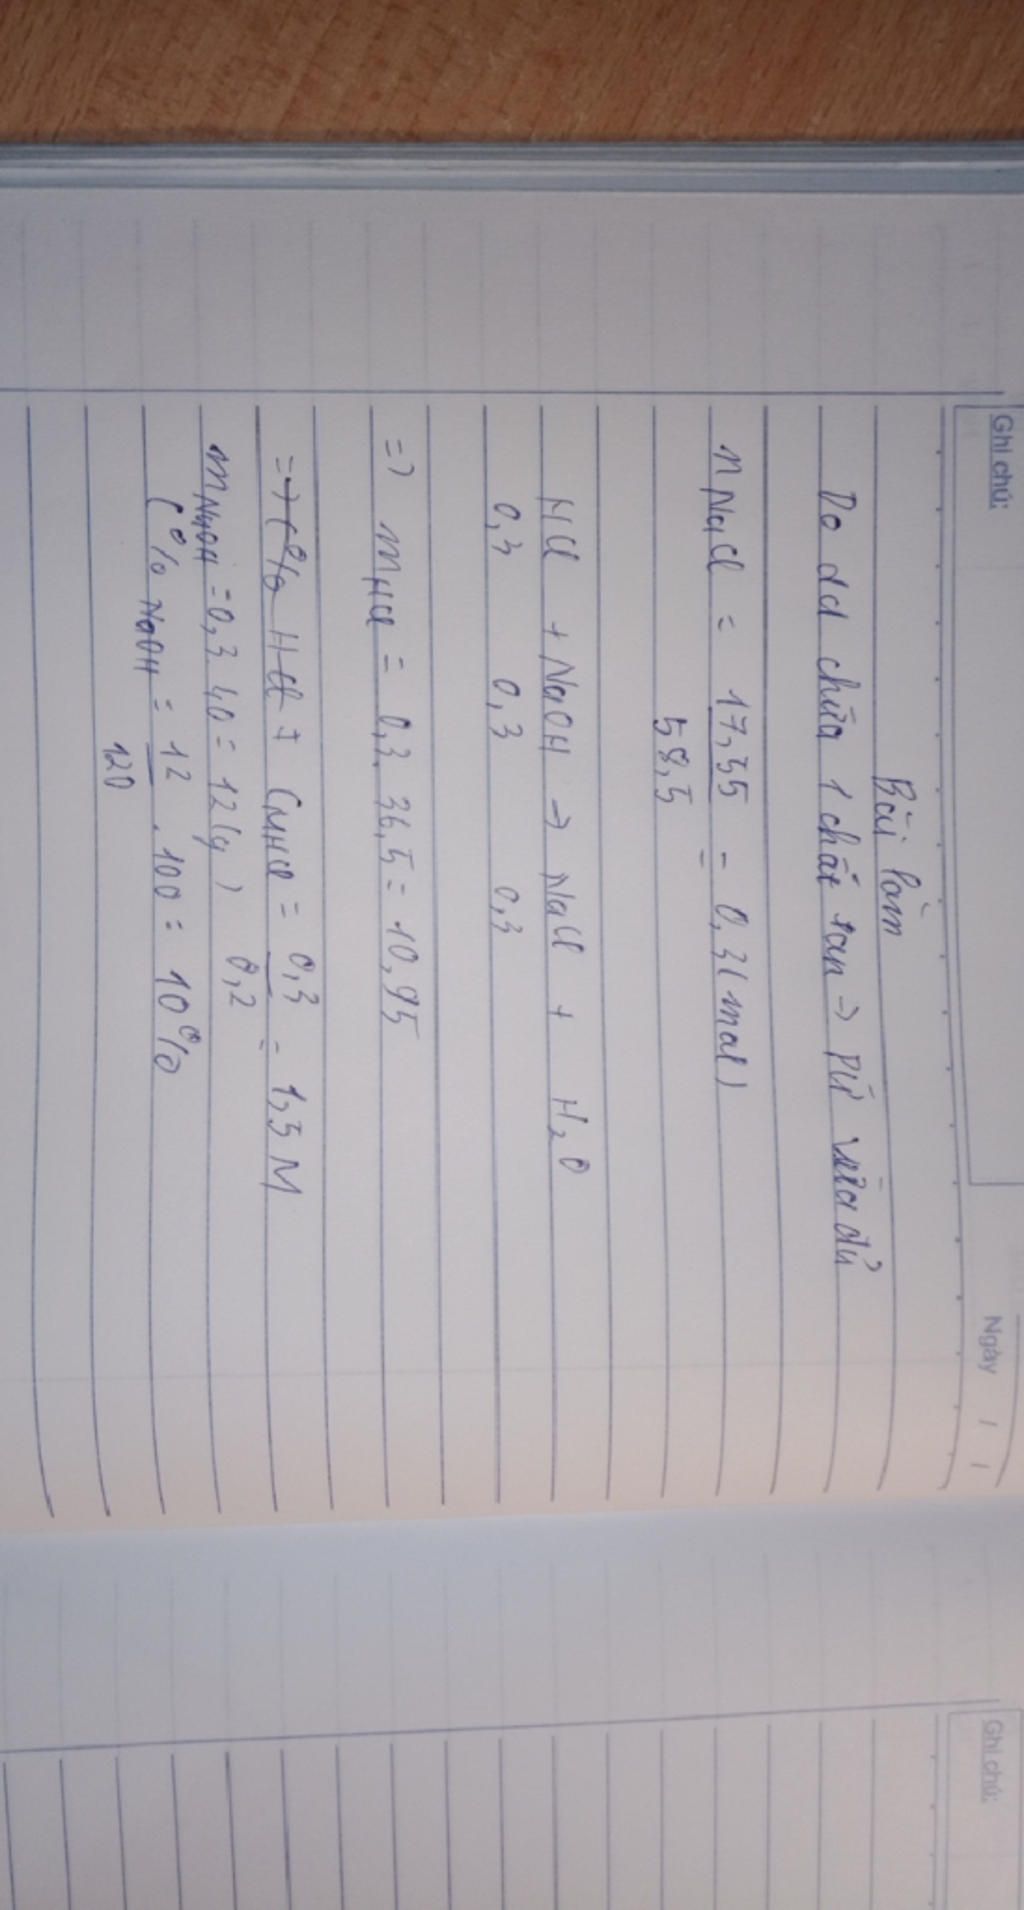 Ghi chú:
Ngày / /
Bài làm
Do dd chứa 1 chất tan → PƯ vừa đủ
n NaCl = 17,55 = 0,3 (mol)
58,5
HCl + NaOH → NaCl + H₂O
0,3 0,3 0,3
=> mHCl = 0,3. 36,5 = 10,95
=> C% HCl = CMHCl = 0,3 = 1,5 M
0,2
mNaOH = 0,3. 40 = 12 (g)
C% NaOH = 12 . 100 = 10%
120
Ghi chú: